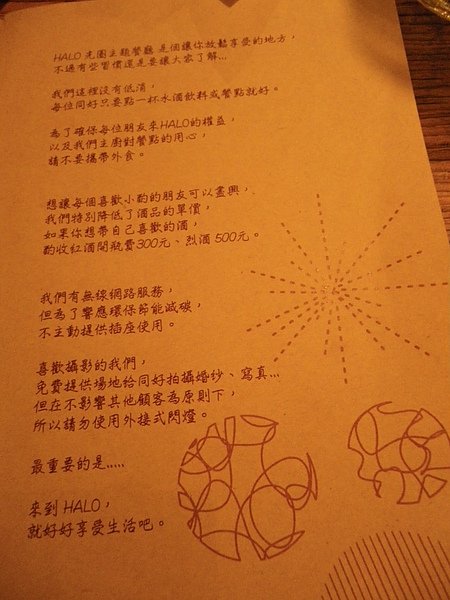 HALO 光圈主題餐廳 是個讓你放鬆享受的地方，
不過有些習慣還是要讓大家了解...
我們這裡沒有低消，
每位同好只要點一杯水酒飲料或餐點就好。
為了確保每位朋友來HALO的權益，
以及我們主廚對餐點的用心，
請不要攜帶外食。
想讓每個喜歡小酌的朋友可以盡興，
我們特別降低了酒品的單價，
如果你想帶自己喜歡的酒，
酌收紅酒開瓶費300元、烈酒 500元。
我們有無線網路服務，
但為了響應環保節能減碳，
不主動提供插座使用。
喜歡攝影的我們，
免費提供場地給同好拍攝婚紗、寫真...
但在不影響其他顧客為原則下，
所以請勿使用外接式閃燈。
最重要的是.....
來到 HALO，
就好好享受生活吧。